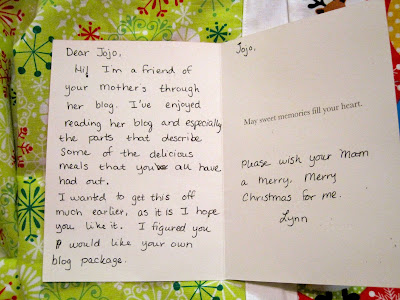 Dear Jojo,
Hi! I'm a friend of
your mother's through
her blog. I've enjoyed
reading her blog and especially
the parts that describe
some of the delicious
meals that you all have
had out.
I wanted to get this off
much earlier, as it is I hope
you like it. I figured you
would like your own
blog package.
Jojo,
May sweet memories fill your heart.
Please wish your Mom
a merry, Merry
Christmas for me.
Lynn